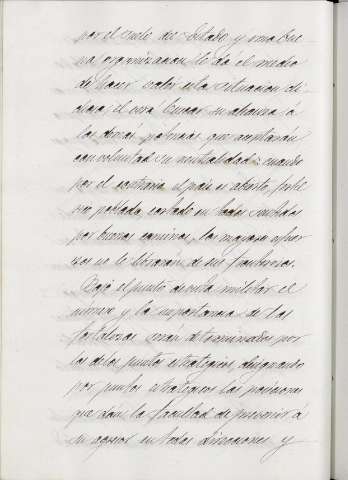 por el suelo del Estado y una bue-
na organizacion le dá el medio
de hacer valer esta situacion di-
chosa; él verá buscar su alianza á
las demas potencias que aceptarán
con voluntad su neutralidad: cuando
por el contrario el pais es abierto, fertil
poblado, cortado en todos sentidos
por buenos caminos, los mayores esfuer-
zos no le librarán de sus
Bajo el punto de vista militar el
número y la importancia de las
fortalezas serán determinados por
los de los puntos estratégicos, designando
por puntos estratégicos las posiciones
que dán la facultad de prevenir á
su agresor en todas direcciones y